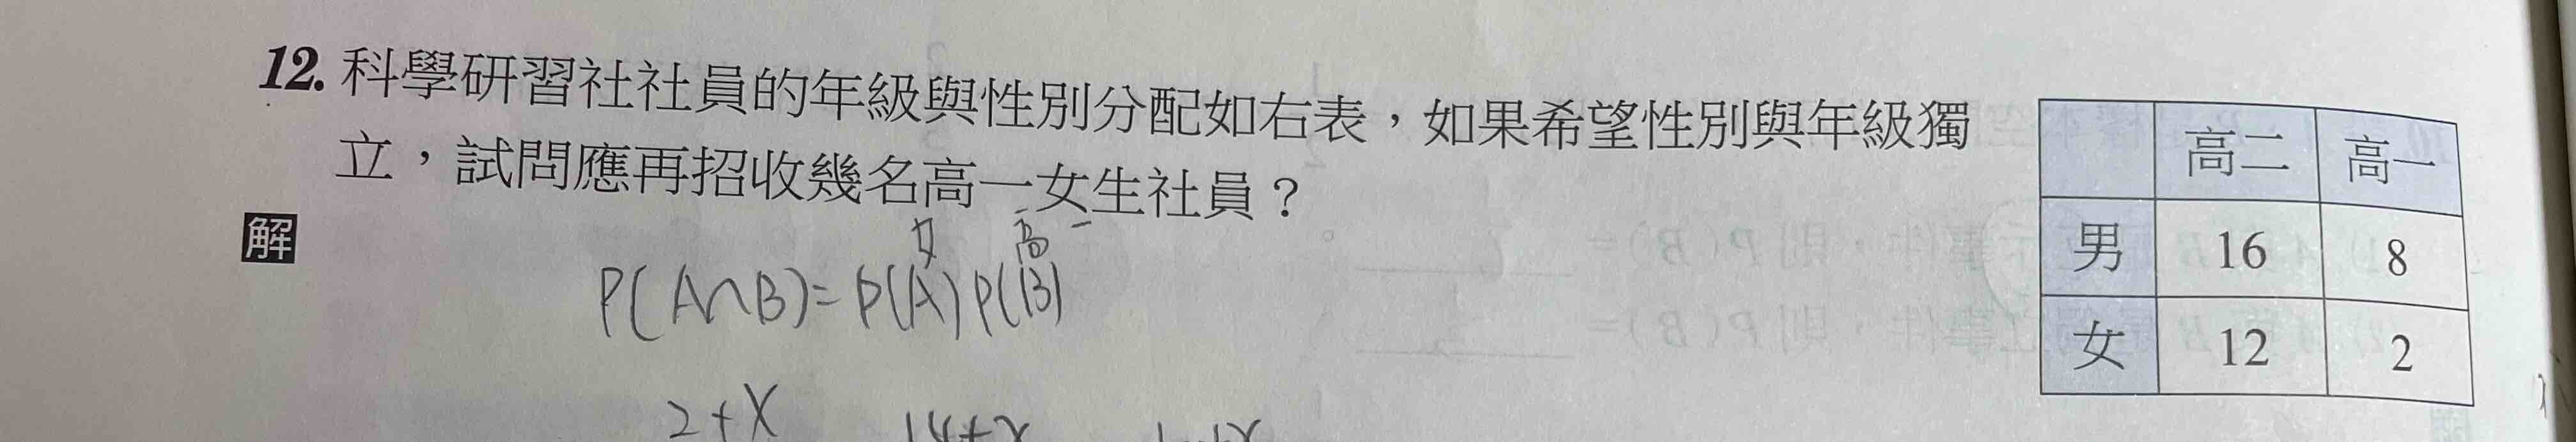 12. 科學研習社社員的年級與性別分配如右表，如果希望性別與年級獨
立，試問應再招收幾名高一女生社員？
高二 高一
男 16 8
女 12 2
解
女 高一
P(A∩B)=P(A)P(B)
2+x 14+x